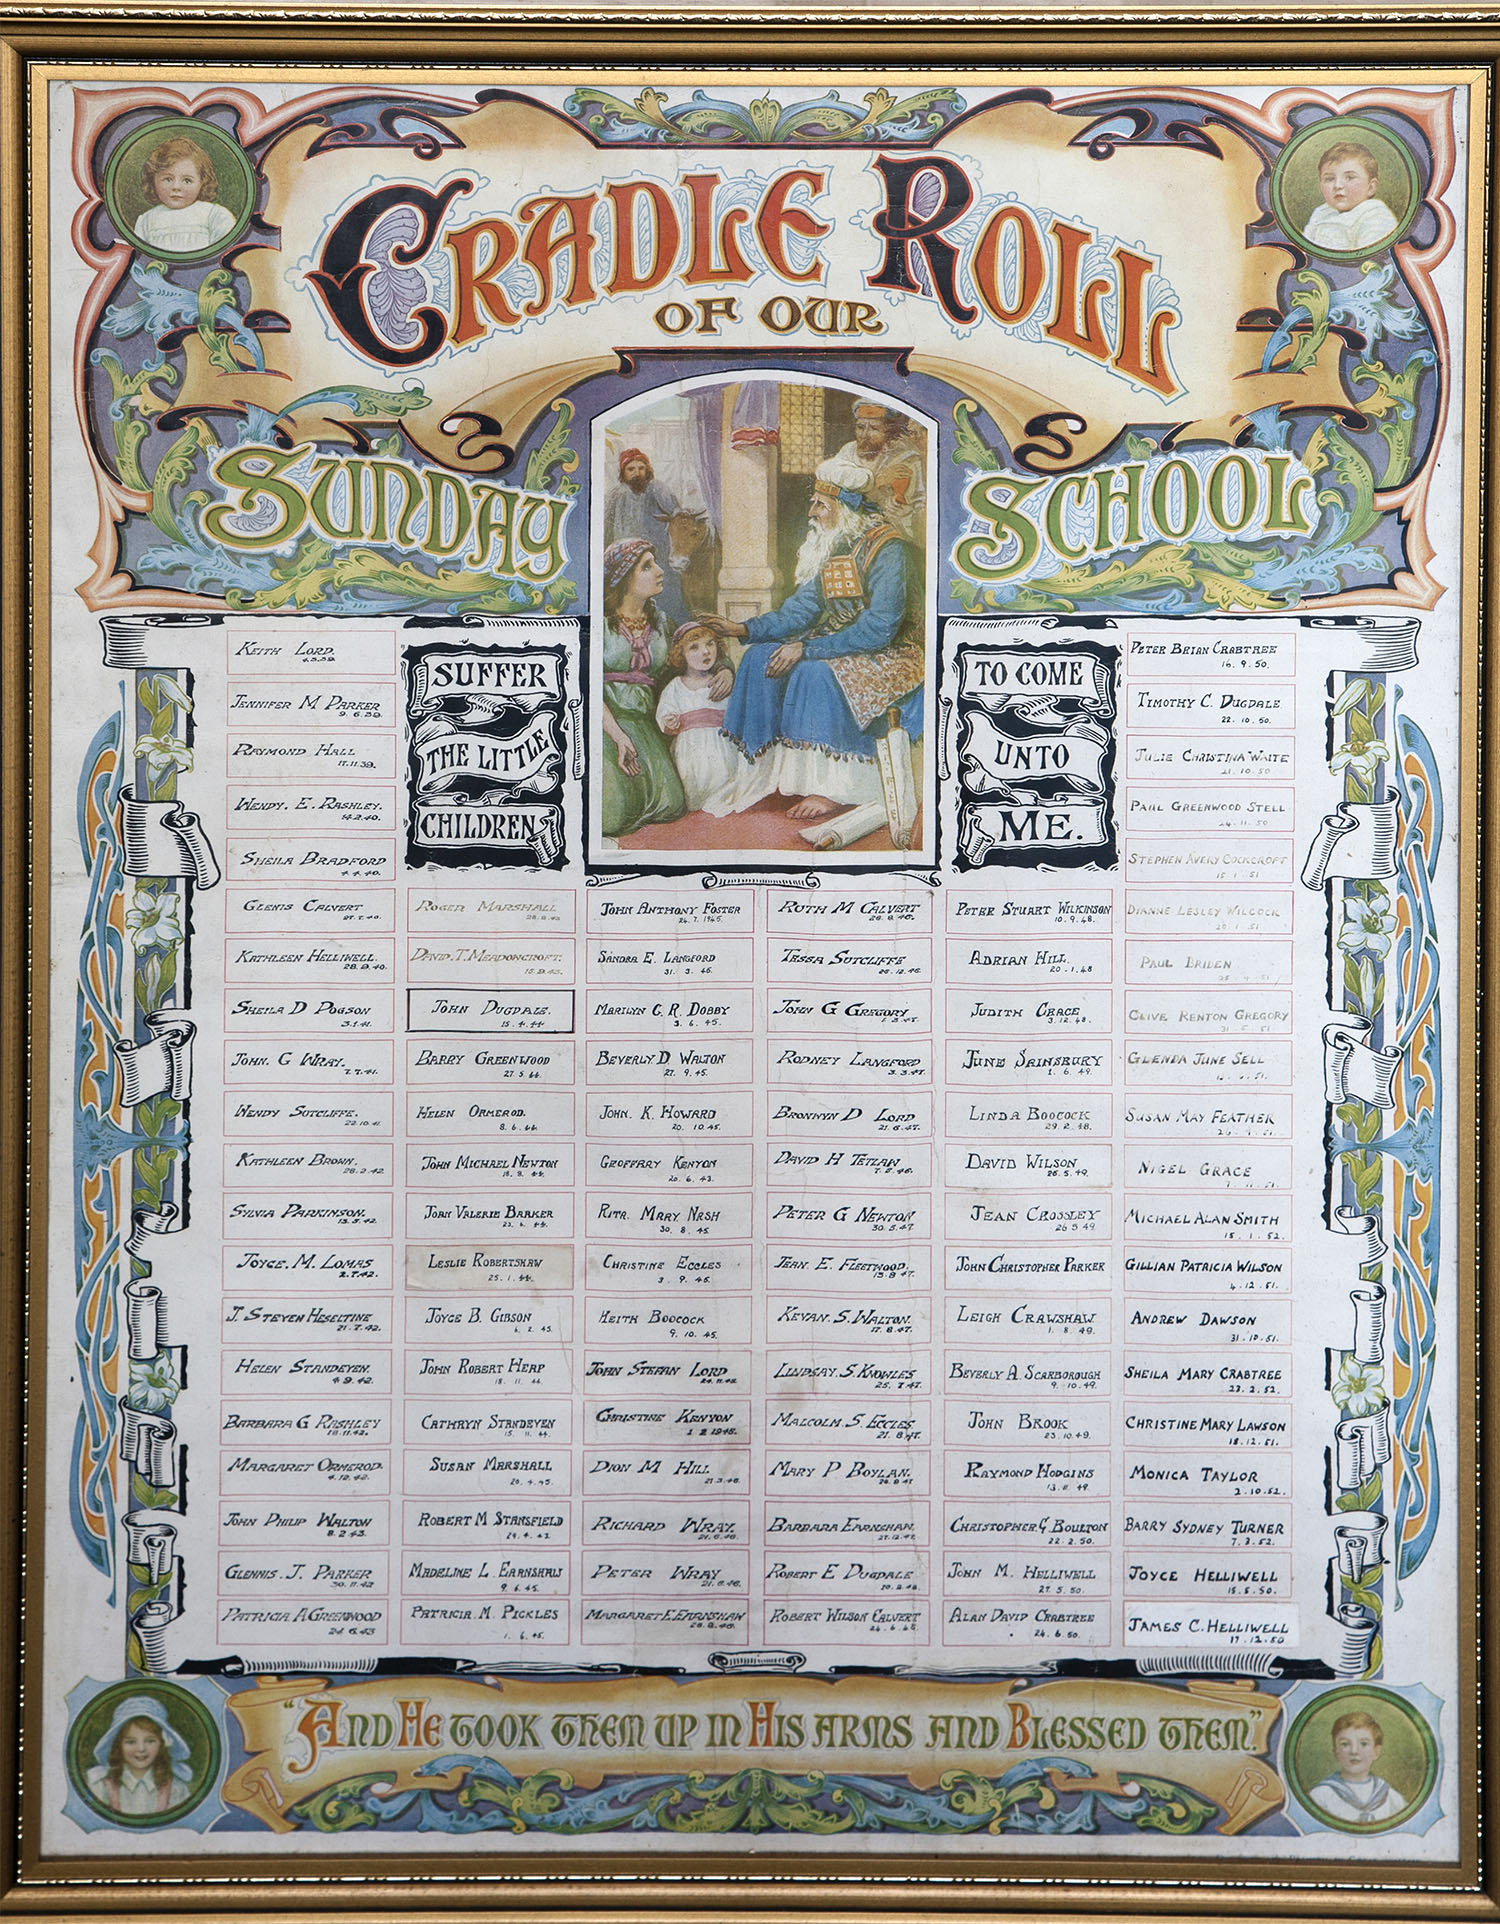 CRADLE ROLL
OF OUR
SUNDAY SCHOOL
SUFFER
THE LITTLE
CHILDREN
TO COME
UNTO
ME.
KEITH LORD.
4.3.39.
JENNIFER M PARKER
9.6.39.
RAYMOND HALL
17.11.39.
WENDY. E. RASHLEY.
14.2.40.
SHEILA BRADFORD
4.4.40.
GLENIS CALVERT
27.7.40.
KATHLEEN HELLIWELL.
28.9.40.
SHEILA D POGSON
3.1.41.
JOHN. G WRAY.
7.7.41.
WENDY SUTCLIFFE.
22.10.41.
KATHLEEN BROWN.
28.2.42.
SYLVIA PARKINSON.
13.5.42.
JOYCE. M. LOMAS
2.7.42.
J. STEVEN HESELTINE
21.7.42.
HELEN STANDEYEN.
4.9.42.
BARBARA G RASHLEY
18.11.42.
MARGARET ORMEROD.
4.12.42.
JOHN PHILIP WALTON
8.2.43.
GLENNIS. J. PARKER
30.11.42
PATRICIA A GREENWOOD
24.6.43
ROGER MARSHALL
28.8.43
DAVID. T. MEADOWCROFT.
15.9.43.
JOHN DUGDALE.
15.4.44
BARRY GREENWOOD
27.5.44.
HELEN ORMEROD.
8.6.44.
JOHN MICHAEL NEWTON
18.8.44.
JOAN VALERIE BARKER
23.4.44.
LESLIE ROBERTSHAW
25.1.44.
JOYCE B. GIBSON
4.2.45.
JOHN ROBERT HEAP
18.11.44.
CATHRYN STANDEYEN
15.11.44.
SUSAN MARSHALL
20.4.45.
ROBERT M STANSFIELD
29.4.43
MADELINE L. EARNSHAW
9.6.45.
PATRICIA. M. PICKLES
1.6.45.
JOHN ANTHONY FOSTER
24.7.1945.
SANDRA E. LANGFORD
31.3.45.
MARILYN C. R. DOBBY
3.6.45.
BEVERLY D WALTON
27.9.45.
JOHN. K. HOWARD
20.10.45.
GEOFFARY KENYON
20.6.43.
RITA. MARY NASH
30.8.45.
CHRISTINE ECCLES
3.9.45.
KEITH BOOCOCK
9.10.45.
JOHN STEFAN LORD
24.11.45
CHRISTINE KENYON
1 2 1945.
DION M HILL
21.3.46.
RICHARD WRAY.
21.6.46.
PETER WRAY
21.6.46.
MARGARET. E. EARNSHAW
28.8.46.
RUTH M CALVERT
28.8.46.
TESSA SUTCLIFFE
26.12.46.
JOHN G GREGORY
1.3.47.
RODNEY LANGFORD
3.3.47.
BRONWYN D LORD
21.6.47.
DAVID H TETLAW
7.2.46.
PETER G NEWTON
30.5.47.
JEAN. E. FLEETWOOD.
15.8.47.
KEVAN. S. WALTON.
17.8.47.
LINDSAY. S. KNOWLES
25.7.47.
MALCOLM. S. ECCLES
21.8.47.
MARY P BOYLAN.
26.8.47
BARBARA EARNSHAW.
27.12.47.
ROBERT E DUGDALE
20.2.48.
ROBERT WILSON CALVERT
24.6.48
PETER STUART WILKINSON
10.9.48.
ADRIAN HILL.
20.1.48
JUDITH GRACE
3.12.48.
JUNE SAINSBURY
1.6.49.
LINDA BOOCOCK
29.2.48.
DAVID WILSON
26.5.49.
JEAN CROSSLEY
26 5 49.
JOHN CHRISTOPHER PARKER
LEIGH CRAWSHAW.
1.8.49.
BEVERLY A. SCARBOROUGH
9.10.49.
JOHN BROOK
23.10.49.
RAYMOND HODGINS
13.11.49.
CHRISTOPHER G BOULTON
22.2.50.
JOHN M. HELLIWELL
27.5.50.
ALAN DAVID CRABTREE
24.6.50.
PETER BRIAN CRABTREE
16.9.50.
TIMOTHY C. DUGDALE
22.10.50.
JULIE CHRISTINA WAITE
21.10.50
PAUL GREENWOOD STELL
24.11.50
STEPHEN AVERY COCKCROFT
15.1.51
DIANNE LESLEY WILCOCK
20.1.51
PAUL BRIDEN
CLIVE KENTON GREGORY
31.5.51.
GLENDA JUNE SELL
SUSAN MAY FEATHER
26.9.51.
NIGEL GRACE
7.11.51.
MICHAEL ALAN SMITH
15.1.52.
GILLIAN PATRICIA WILSON
4.12.51.
ANDREW DAWSON
31.10.51.
SHEILA MARY CRABTREE
23.2.52.
CHRISTINE MARY LAWSON
18.12.51.
MONICA TAYLOR
2.10.52.
BARRY SYDNEY TURNER
7.3.52.
JOYCE HELLIWELL
15.5.50.
JAMES C. HELLIWELL
17.12.50
"AND HE TOOK THEM UP IN HIS ARMS AND BLESSED THEM."